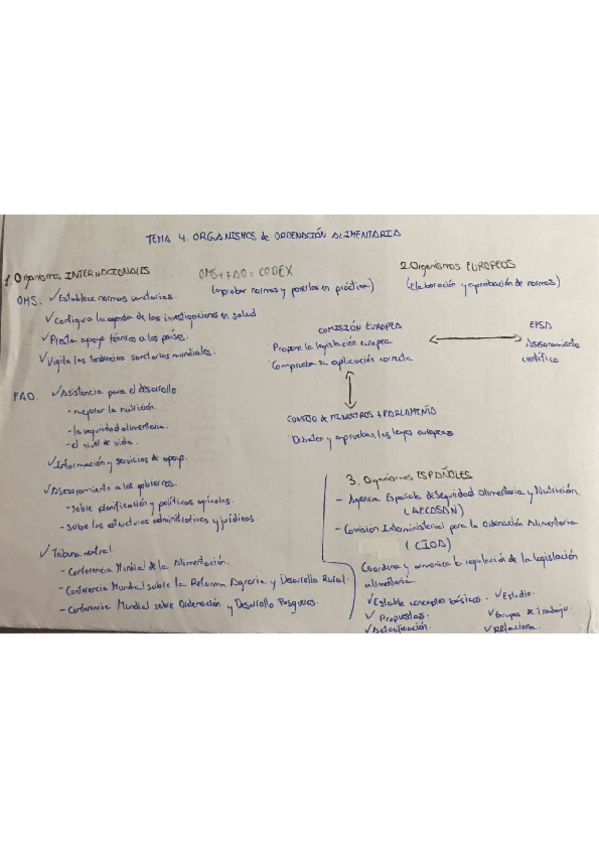 TEMA 4. ORGANISMOS de ORDENACIÓN ALIMENTARIA
1. Organismos INTERNACIONALES
OMS + FAO = CODEX
(aprobar normas y ponerlas en práctica)
OMS. ✓Establece normas sanitarias.
✓Configura la agenda de las investigaciones en salud.
✓Presta apoyo técnico a los países.
✓Vigila las tendencias sanitarias mundiales.
FAO. ✓Asistencia para el desarrollo
- mejorar la nutrición.
- la seguridad alimentaria.
- el nivel de vida.
✓Información y servicios de apoyo.
✓Asesoramiento a los gobiernos.
- Sobre planificación y políticas agrícolas.
- Sobre las estructuras administrativas y jurídicas.
✓Tribuna neutral.
- Conferencia Mundial de la Alimentación.
- Conferencia Mundial sobre la Reforma Agraria y Desarrollo Rural.
- Conferencia Mundial sobre Ordenación y Desarrollo Pesqueros.
2. Organismos EUROPEOS
(Elaboración y aprobación de normas)
COMISIÓN EUROPEA
Propone la legislación europea
Comprueba su aplicación correcta
EFSA
Asesoramiento
científico
CONSEJO DE MINISTROS Y PARLAMENTO
Debaten y aprueban las leyes europeas
3. Organismos ESPAÑOLES
- Agencia Española de Seguridad Alimentaria y Nutrición.
(AECOSAN)
- Comision Interministerial para la Ordenación Alimentaria
(CIOA)
Coordina y armoniza la regulación de la legislación
alimentaria
✓Estable conceptos básicos. ✓Estudio.
✓Propuestas. ✓Grupos de trabajo.
✓Actualización. ✓Relaciona.